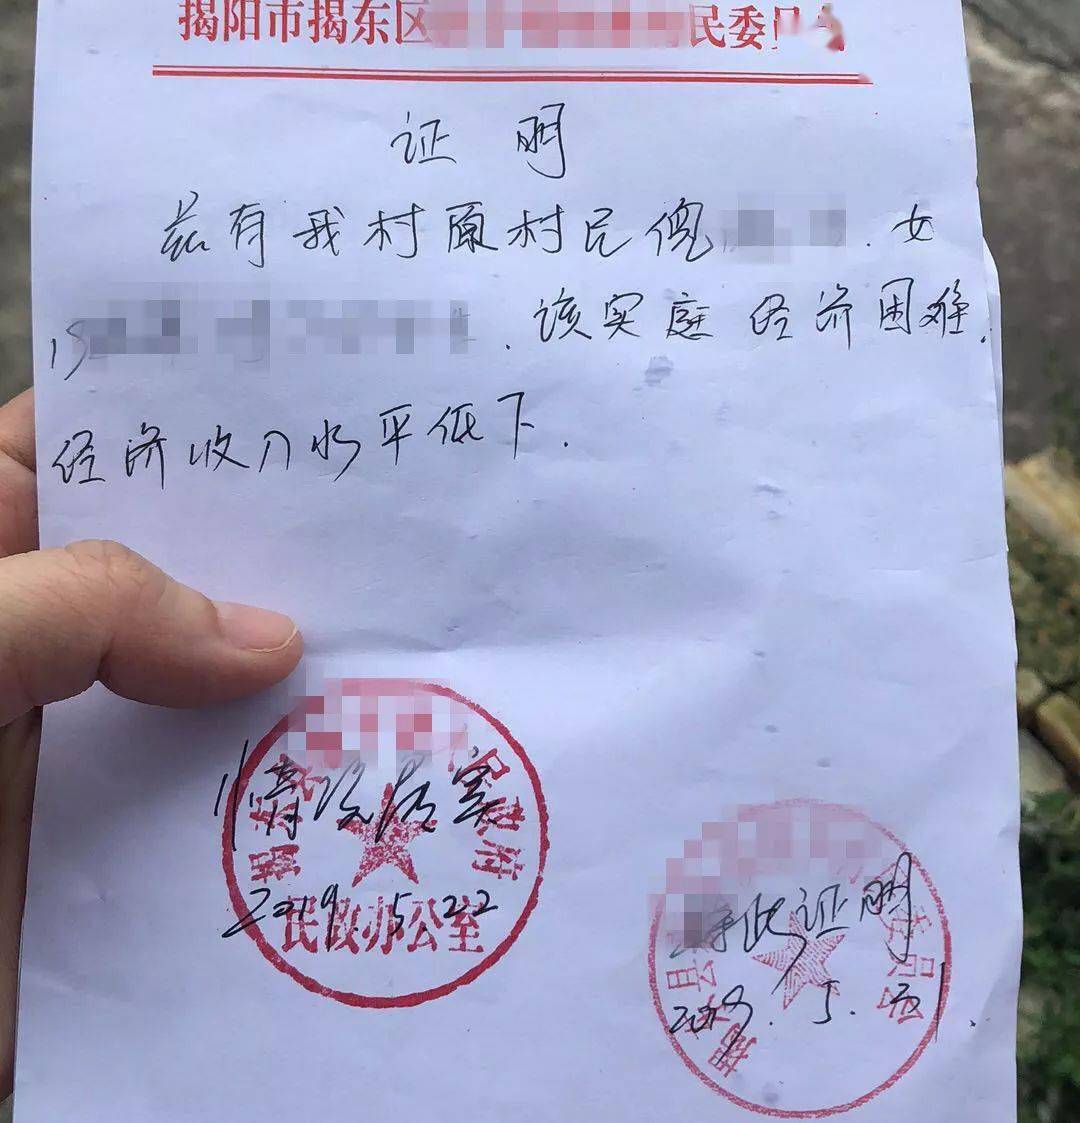 揭阳市揭东区 民委员会
证明
兹有我村原村民 女
该家庭经济困难,
经济收入水平低下.
人民政府
情况属实
2019.5.22
民政办公室
特此证明
2019.5.